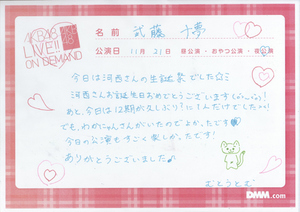 AKB48 LIVE!! ON DEMAND
名前 武藤十夢
公演日 11月21日 昼公演・おやつ公演・夜公演
今日は河西さんの生誕祭でした☆ミ
河西さんお誕生日おめでとうございます
あと、今日は12期が久しぶりに1人だけでした
でも、わかにゃんさんがいたのでよかったです♡
今日の公演もすごく楽しかったです!
ありがとうございました♪
むとうとむ
DMM.com